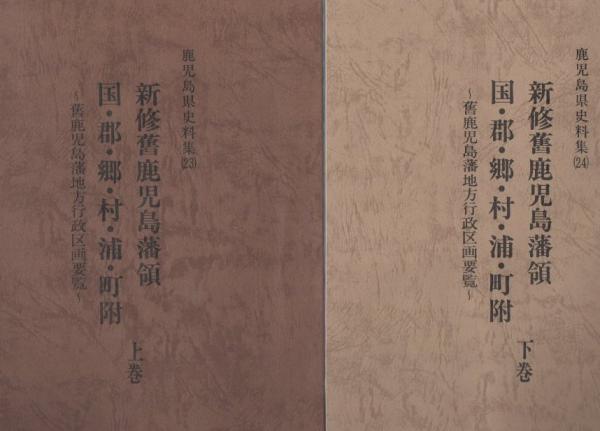 鹿児島県史料集(23)
新修舊鹿児島藩領
国・郡・郷・村・浦・町附
~舊鹿児島藩地方行政区画要覧~
上巻
鹿児島県史料集(24)
新修舊鹿児島藩領
国・郡・郷・村・浦・町附
~舊鹿児島藩地方行政区画要覧~
下巻